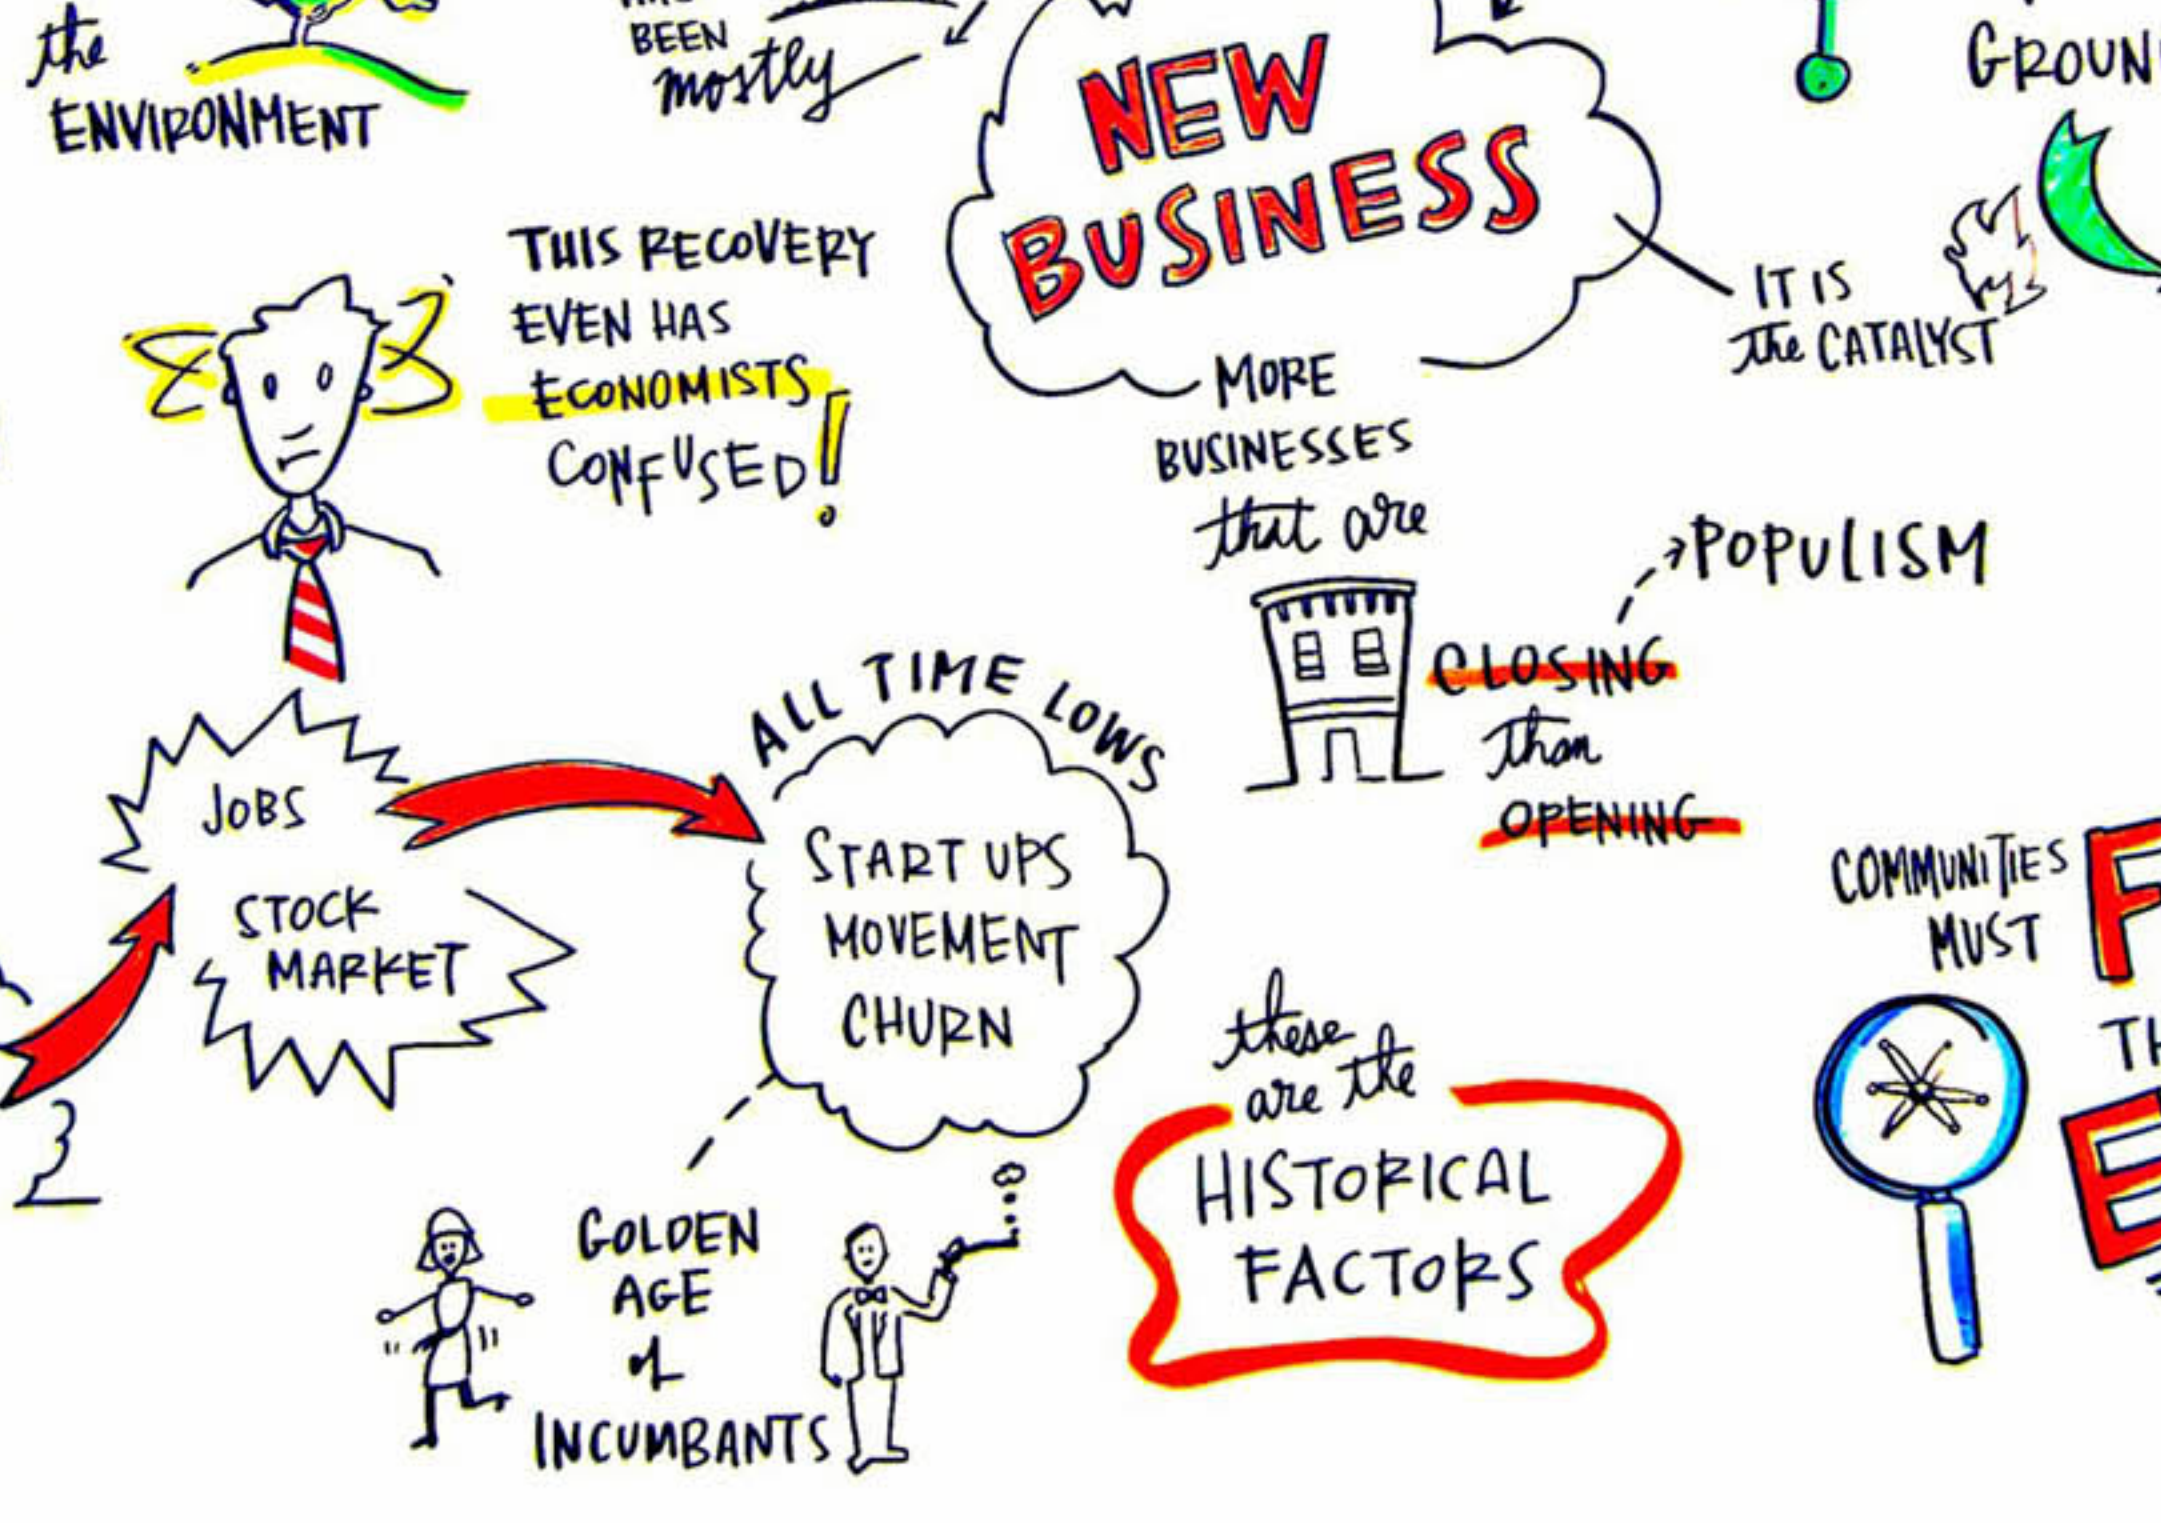 the
ENVIRONMENT
BEEN
mostly
NEW
BUSINESS
IT IS
the CATALYST
THIS RECOVERY
EVEN HAS
ECONOMISTS
CONFUSED!
MORE
BUSINESSES
that are
CLOSING
than
OPENING
POPULISM
JOBS
STOCK
MARKET
ALL TIME LOWS
START UPS
MOVEMENT
CHURN
GOLDEN
AGE
of
INCUMBANTS
these
are the
HISTORICAL
FACTORS
COMMUNITIES
MUST